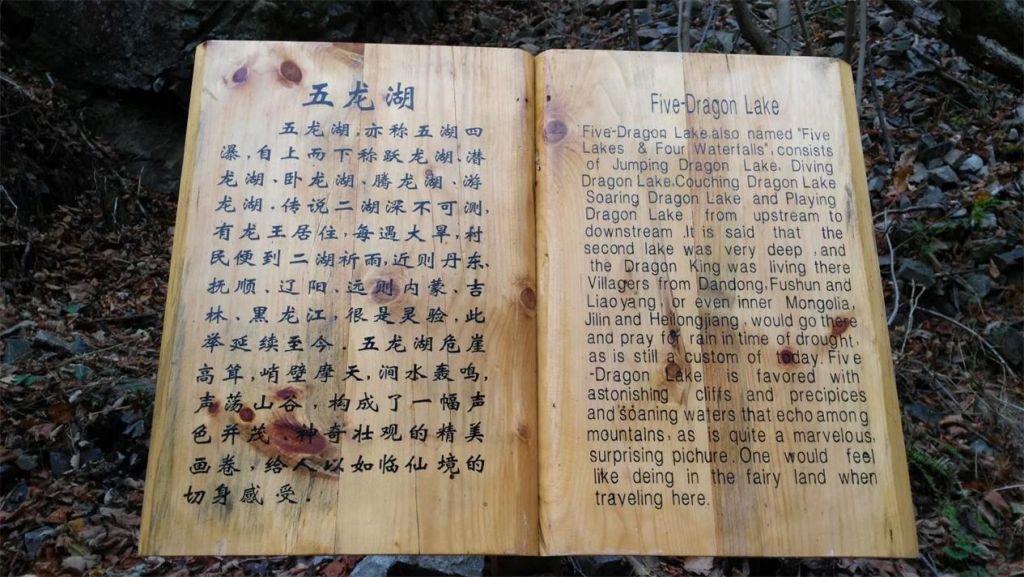 五龙湖
五龙湖,亦称五湖四
瀑,自上而下称跃龙湖、潜
龙湖、卧龙湖、腾龙湖、游
龙湖.传说二湖深不可测,
有龙王居住,每遇大旱,村
民便到二湖祈雨,近则丹东、
抚顺、辽阳、远则内蒙、吉
林、黑龙江,很是灵验,此
举延续至今.五龙湖危崖
高耸,峭壁摩天,涧水轰鸣,
声荡山谷,构成了一幅声
色并茂、神奇壮观的精美
画卷,给人以如临仙境的
切身感受.
Five-Dragon Lake
"Five-Dragon Lake,also named "Five
Lakes & Four Waterfalls", consists
of Jumping Dragon Lake, Diving
Dragon Lake,Couching Dragon Lake
Soaring Dragon Lake and Playing
Dragon Lake from upstream to
downstream .It is said that the
second lake was very deep ,and
the Dragon King was living there
Villagers from Dandong,Fushun and
Liaoyang, or even inner Mongolia,
Jilin and Heilongjiang, would go there
and pray for rain in time of drought,
as is still a custom of today. Five
-Dragon Lake is favored with
astonishing cliffs and precipices
and soaning waters that echo among
mountains, as is quite a marvelous,
surprising pichure. One would feel
like deing in the fairy land when
traveling here.